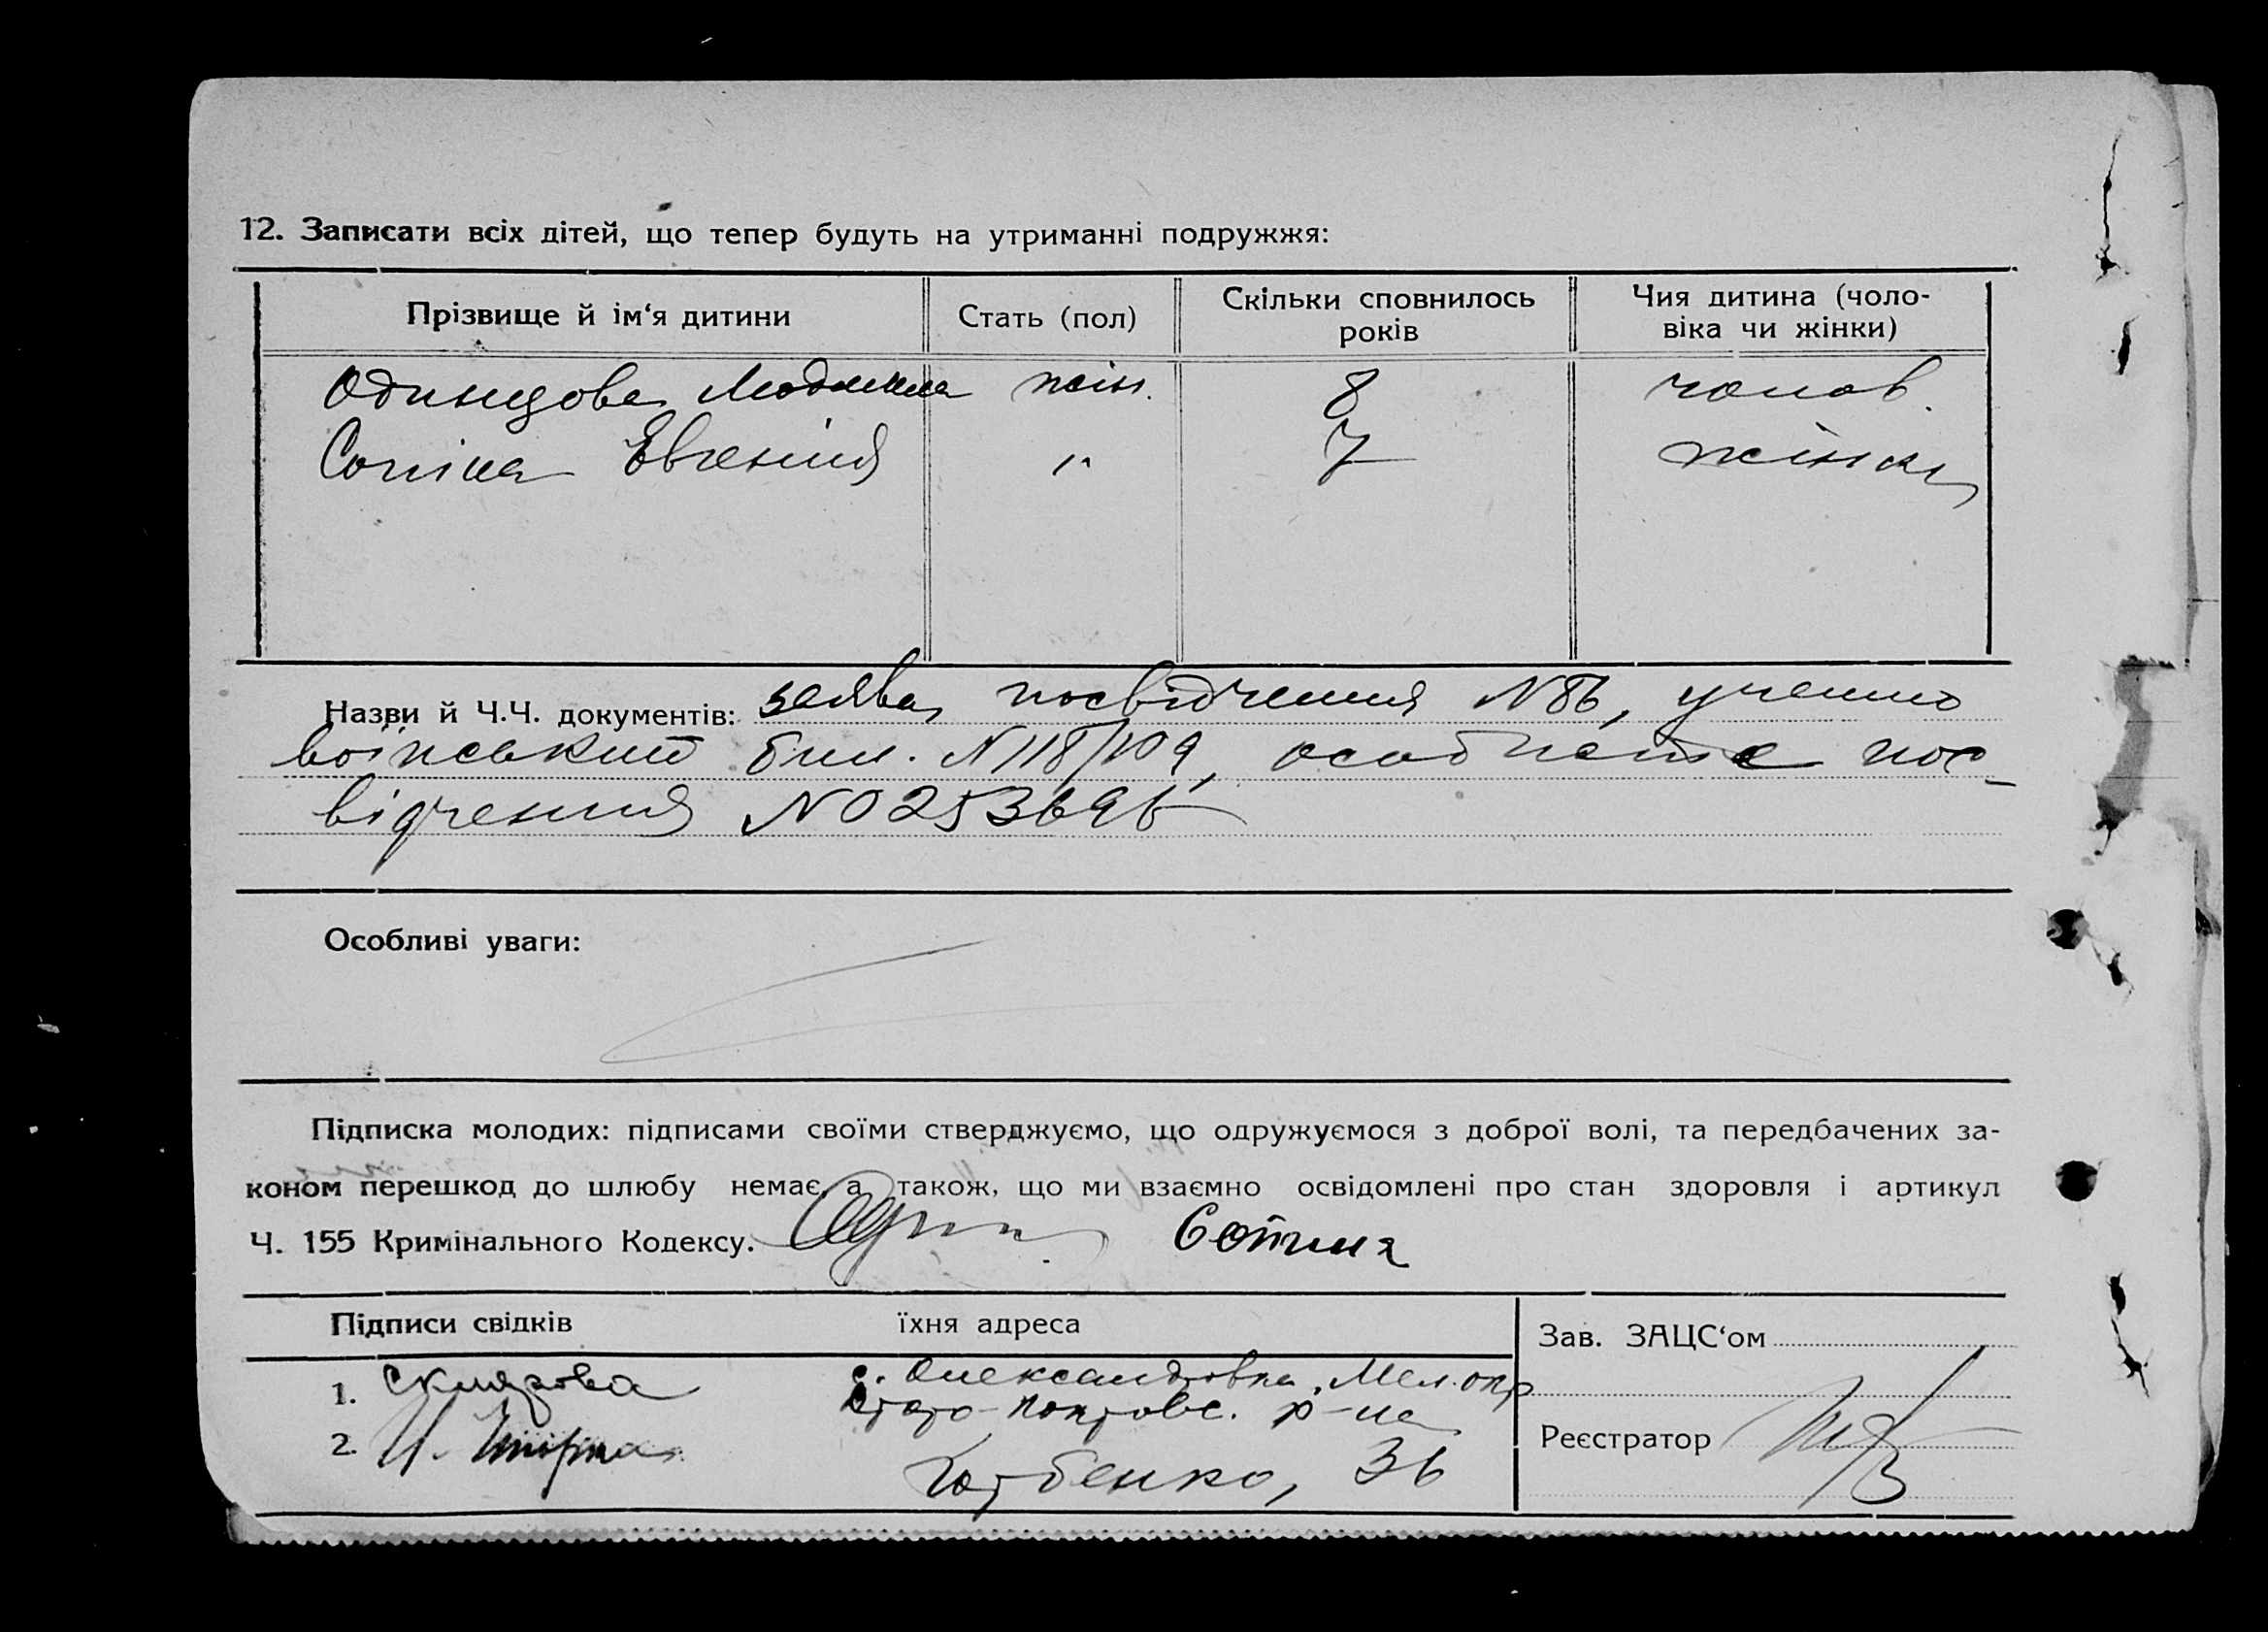 12. Записати всіх дітей, що тепер будуть на утриманні подружжя:
Прізвище й ім‘я дитини Стать (пол) Скільки сповнилось років Чия дитина (чоловіка чи жінки)
Одинцова Людмила жін. 8 чолов.
Сопіна Євгенія " 7 жінки
Назви й Ч.Ч. документів: заява, посвідчення N86,
воїнський бил. N118/109, особисте пос-
відчення N0253696
Особливі уваги:
Підписка молодих: підписами своїми стверджуємо, що одружуємося з доброї волі, та передбачених за-
коном перешкод до шлюбу немає, а також, що ми взаємно освідомлені про стан здоровля і артикул
Ч. 155 Кримінального Кодексу.
Підписи свідків їхня адреса Зав. ЗАЦС‘ом
1. Склярова с. Олександровка, Мел. окр
Старо-Покровс. р-на
2. Горбенко, 36
Реєстратор